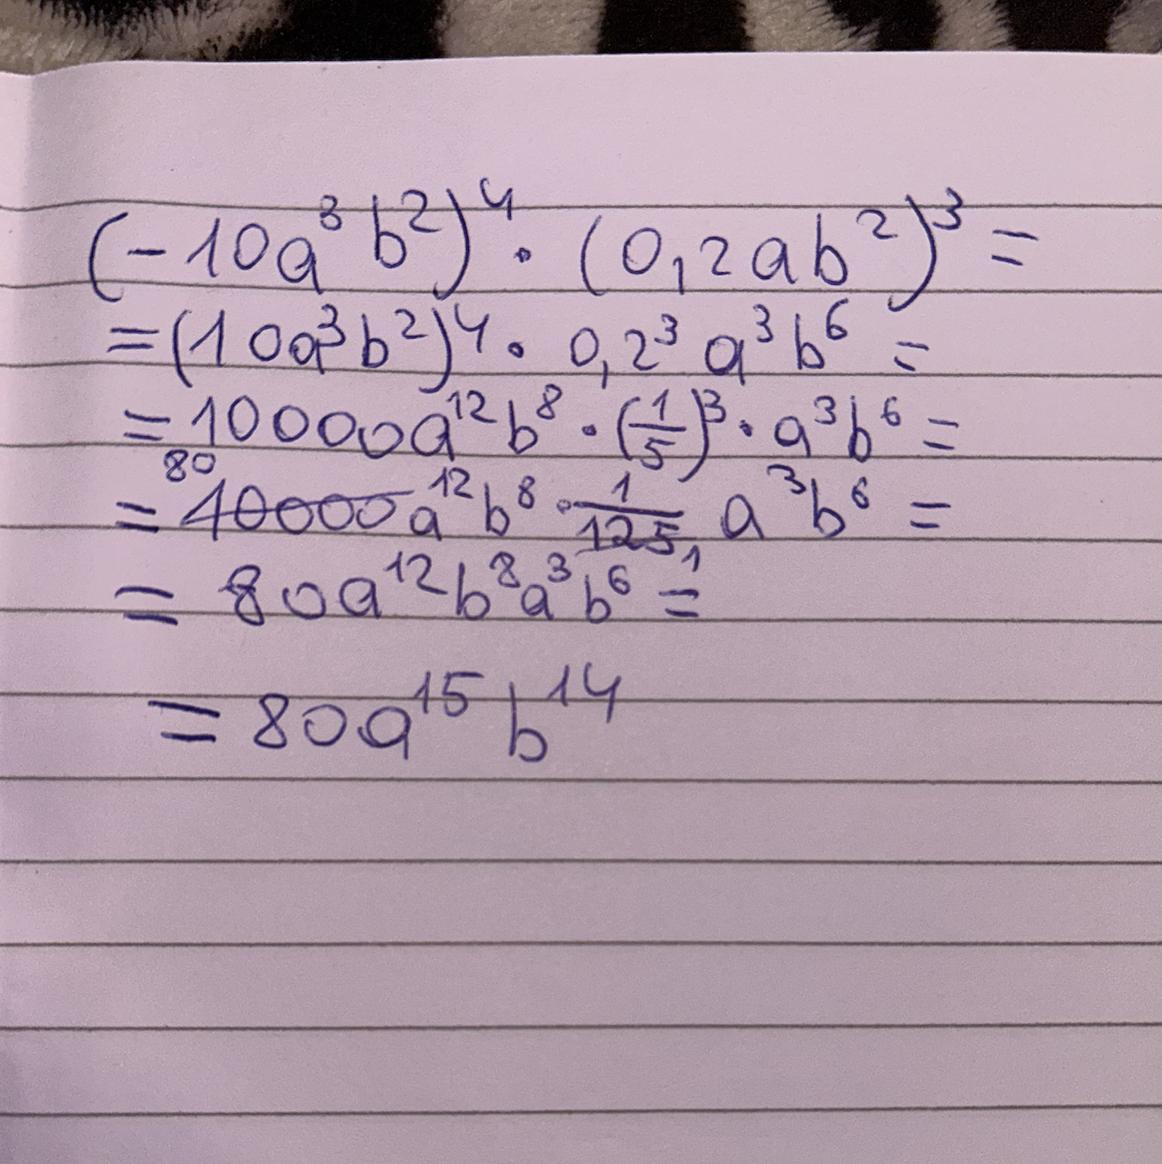 (-10a³b²)⁴·(0,2ab²)³=
=(10a³b²)⁴·0,2³a³b⁶=
=10000a¹²b⁸·(1/5)³·a³b⁶=
80
=10000a¹²b⁸·1/125 a³b⁶=
1
=80a¹²b⁸a³b⁶=
=80a¹⁵b¹⁴